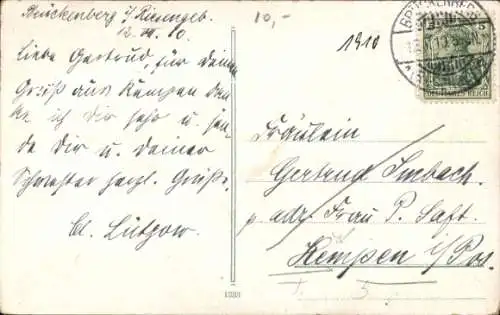 Brückenberg i/Riesengeb.
12. VII. 10.
Liebe Gertrud, für Deinen
Gruß aus Kempen dan-
ke ich Dir sehr u. sen-
de Dir u. Deiner
Schwester herzl. Grüße.
Cl. Lützow.
10,-
1910
BRÜCKENBERG
5
DEUTSCHES REICH
Fräulein
Gertrud Imbach.
p. adr. Frau P. Saft.
Kempen i/Pos.